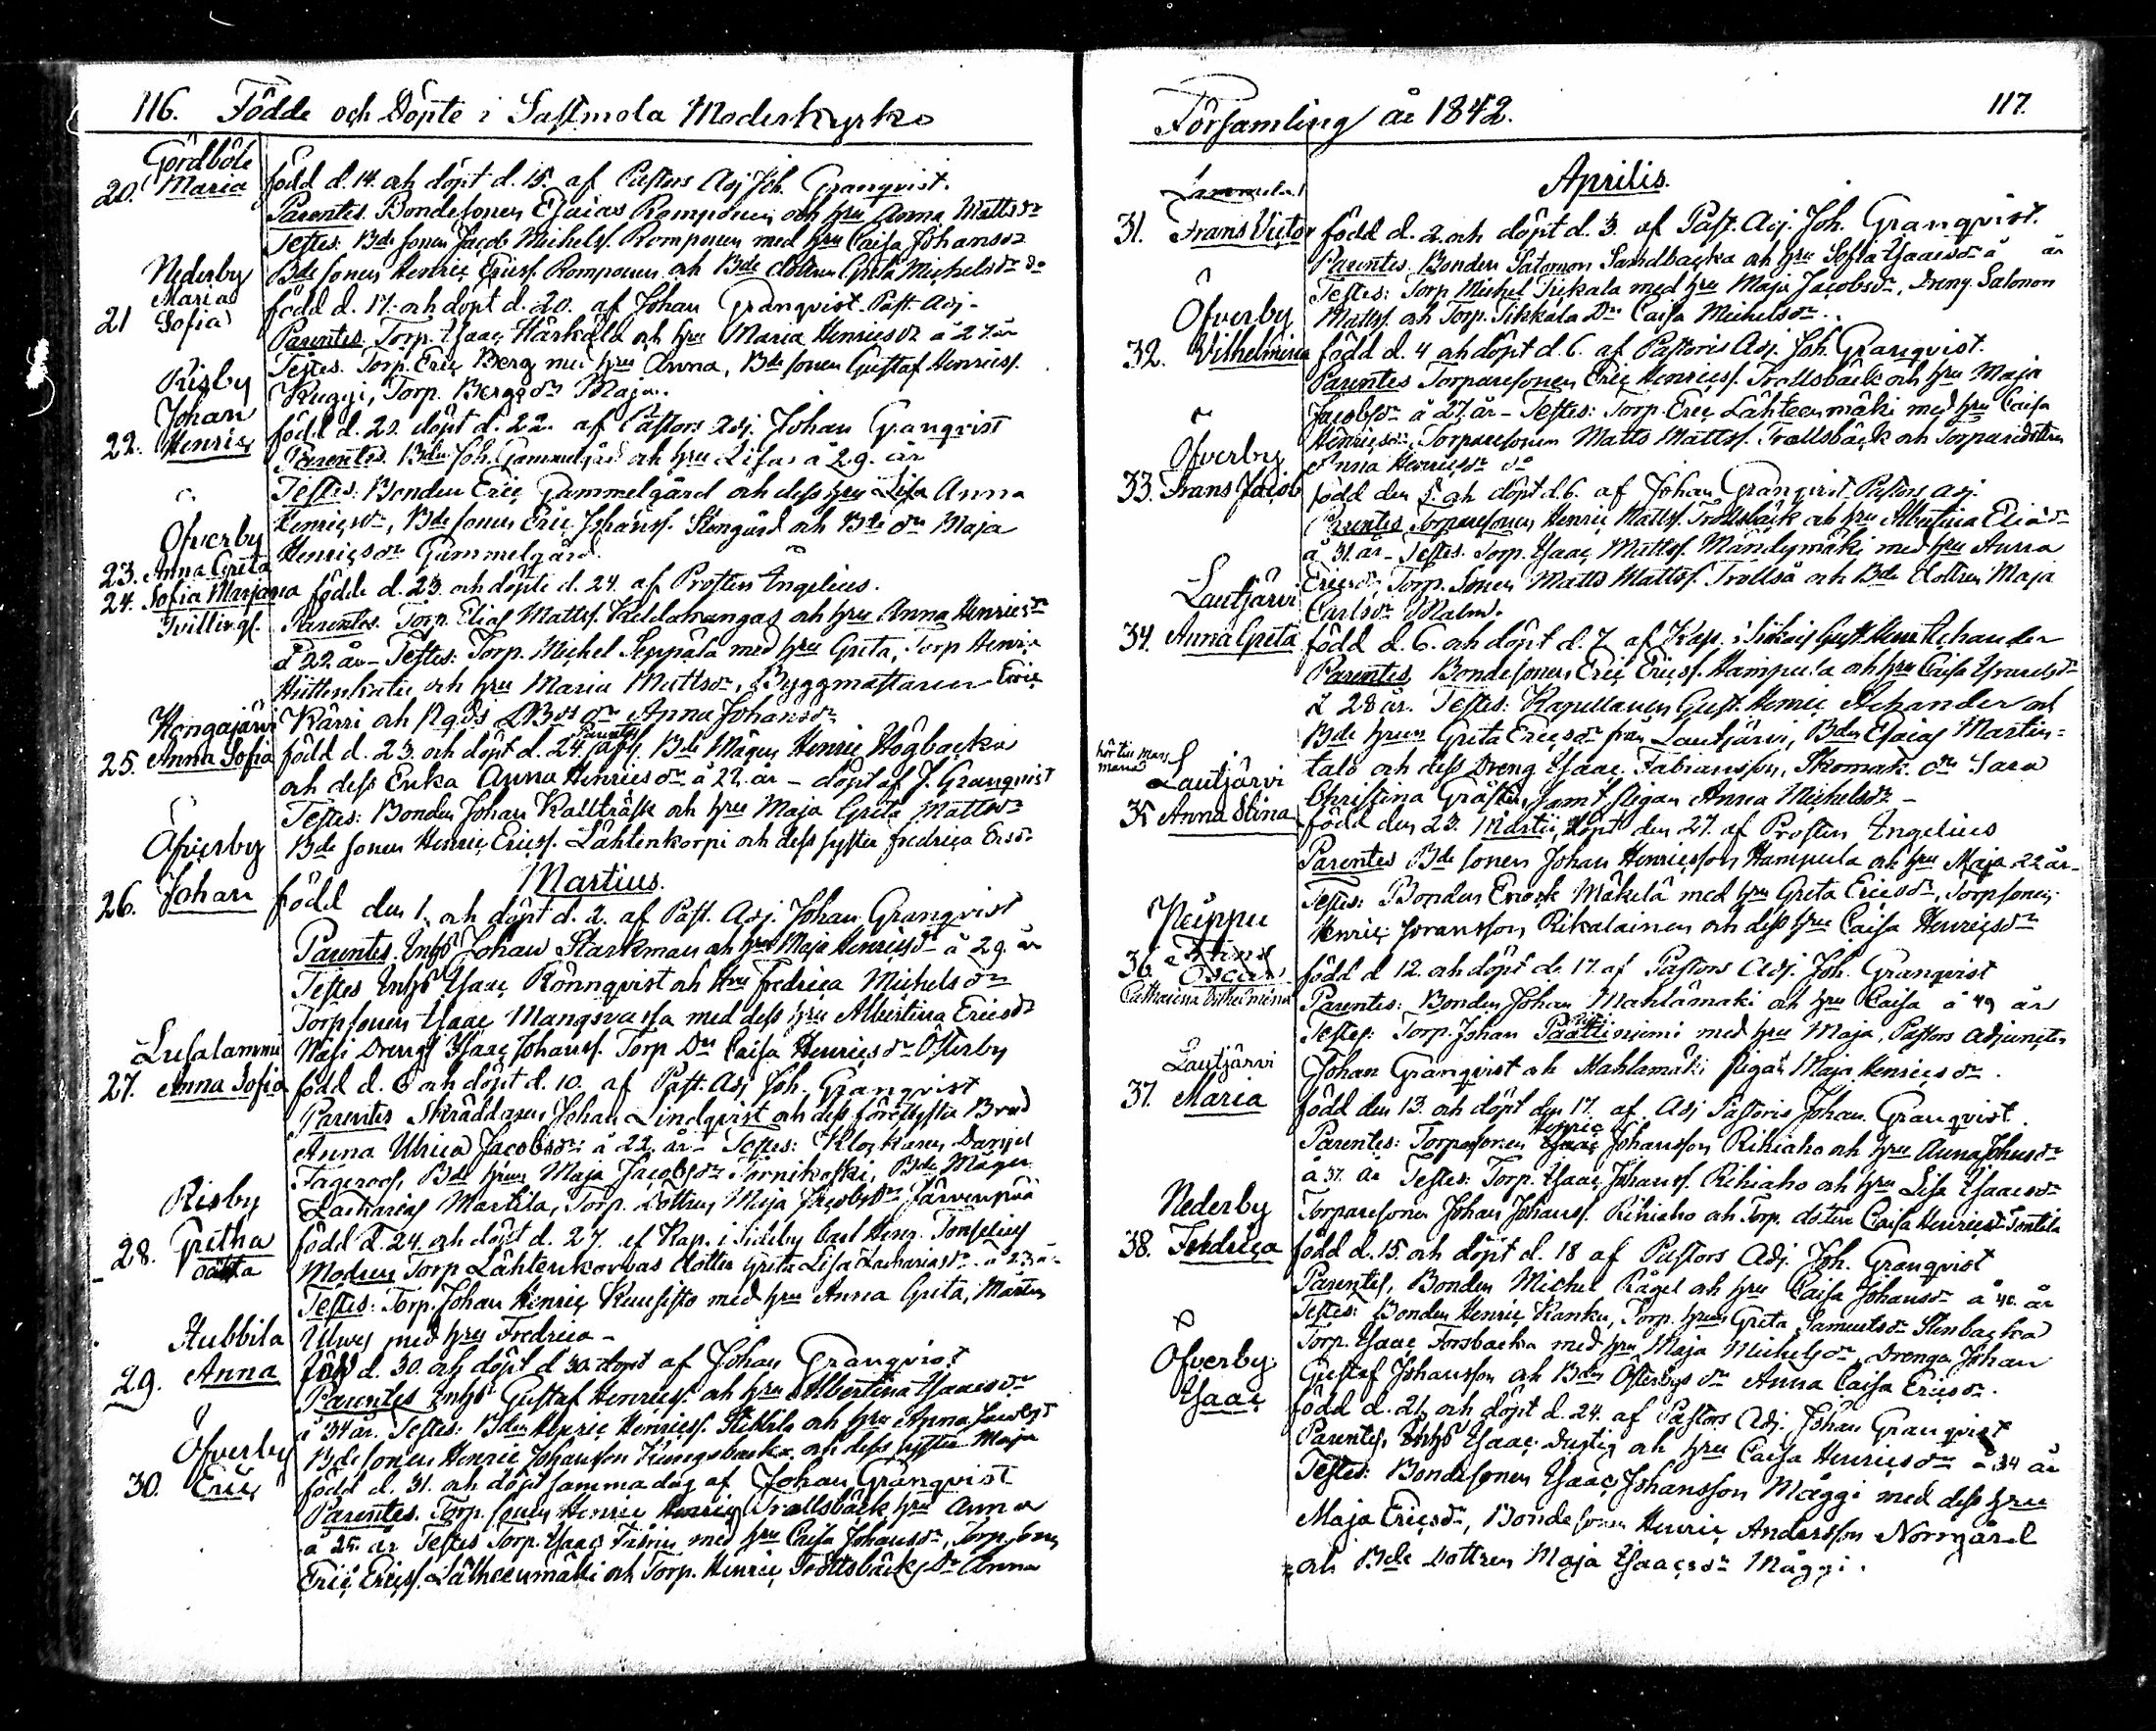 116. Födde och Döpte i Sastmola Moderkyrko
Gördböle
20. Maria född d. 14. och döpt d. 15. af Pastors Adj Joh. Granqvist.
Parentes. Bondesonen Esaias Romponen och hru Anna Mattsdr
Testes: Bde sonen Jacob Michelss. Romponen med hru Caisa Johansdr
Nederby Bde sonen Henric Ericss. Romponen och Bde dottren Greta Michelsdr do
Maria
21 Sofia född d. 17. och döpt d. 20. af Johan Granqvist Past. Adj.
Parentes. Torp. Ysaac Härkälä och hru Maria Henricsdr à 27 år
Testes. Torp. Eric Berg med hru Anna, Bde sonen Gustaf Henricss.
Risby Ruggi, Torp. Bergs dr Maja.
Johan
22. Henric född d. 20. döpt d. 22. af Pastors Adj. Johan Granqvist
Parentes. Bden Joh. Gammelgård och hru Lisa à 29. år
Testes: Bonden Eric Gammelgård och dess hru Lisa Anna
Henricsdr, Bde sonen Eric Johanss. Stengård och Bde dr Maja
Öfverby Henricsdr Gammelgård.
23. Anna Greta
24. Sofia Marjana födde d. 23. och döpte d. 24. af Prosten Engelius.
Tvillingr. Parentes. Torp. Elias Mattss. Kiddakangas och hru Anna Henricsdr
à 22 år - Testes: Torp. Michel Seppälä med hru Greta, Torp Henric
och hru Maria Mattsdr, Byggmästaren Eric
Hongajärvi Kärri och dr Anna Johansdr
25. Anna Sofia född d. 23. och döpt d. 24. Parentes Bde Mågen Henric Högbacka
och dess Enka Anna Henricsdr à 22. år - döpt af J. Granqvist
Testes: Bonden Johan Kallträsk och hru Maja Greta Mattsdr
Öfverby Bde sonen Henric Ericss. Lähtenkorpi och dess syster Fredrica Ersdr
Martius.
26. Johan född den 1. och döpt d. 2. af Past. Adj. Johan Granqvist
Parentes. Inhs Johan Starkman och hru Maja Henricsdr à 29. år
Testes Inhs Ysaac Rönnqvist och Hru Fredrica Michelsdr
Torpsonen Ysaac Mangsvasa med dess hru Albertina Ericsdr
Lusalammi Näsi Drengs Ysaac Johanss. Torp Dn Caisa Henricsdr Österby
27. Anna Sofia född d. 8 och döpt d. 10. af Past. Adj Joh. Granqvist
Parentes Skräddaren Johan Lindqvist och dess förestyfta Brud
Anna Ulrica Jacobsdr à 22 år - Testes: Klockaren Daniel
Fageroos, Bde hrun Maja Jacobsdr Tornikoski, Bde Mågen
Risby Zacharias Martila, Torp. Dottren Maja Jacobsdr Järvenpää
28. Gretha född d. 24. och döpt d. 27. af Kap. i Sideby Carl Henr. Tonselius
oäkta Modren Torp Lähtenkorvas dotter Greta Lisa Zachariasdr à 23 år
Testes: Torp. Johan Henric Kuusisto med hru Anna Greta, Mårten
Hubbila med hru Fredrica -
29. Anna född d. 30. och döpt d 30 döpt af Johan Granqvist
Parentes Inhs Gustaf Henricss. och hru Albertina Ysaacsdr
à 34 år. Testes: Bden Henric Henricss. och hru Anna Jacobsdr
Öfverby Bde sonen Henric Johansson Kungsbacka och dess syster Maja
30. Eric född d. 31. och döpt samma dag af Johan Granqvist
Parentes. Torp. sonen Henric Henricss Trollsbäck hru Anna
à 25 år Testes Torp. Ysaac med hru Caisa Johansdr, Torp. son
Eric Ericss. Lähteenmäki och Torp. Henric Trollsbäck Dr Anna
Församling år 1842. 117.
Aprilis.
Lammela
31. Frans Victor född d. 2. och döpt d. 3. af Past. Adj. Joh. Granqvist.
Parentes. Bonden Salomon Sandbacka och hru Sofia Ysaacsdr à år
Testes: Torp Michel Tickala med hru Maja Jacobsdr, Dreng. Salomon
Öfverby Mattss. och Torp. Tikkala Dr Caisa Michelsdr.
32. Vilhelmina född d. 4 och döpt d. 6. af Pastoris Adj. Joh. Granqvist.
Parentes Torparesonen Eric Henricss. Trollsbäck och hru Maja
Jacobsdr à 27. år - Testes: Torp. Eric Lähteenmäki med hru Caisa
Henricsdr, Torparesonen Matts Mattss. Trollsbäck och Torparedottren
Öfverby Anna Henricsdr do
33. Frans Jacob född den 5. och döpt d. 6. af Johan Granqvist Pastors Adj.
Parentes Torparesonen Henric Mattss. Trollsbäck och hru Albertina Eliædr
à 31. år - Testes. Torp. Ysaac Mattss. Mändymäki med hru Anna
Ericsdr, Torp. Sonen Matts Mattss. Trollså och Bde dottren Maja
Lautjärvi Carlsdr Malm.
34. Anna Greta född d. 6. och döpt d. 7. af Kap. i Siikais Gust. Henr. Achander
Parentes Bondesonen Eric Ericss. Hampula och hru Caisa
à 28 år. Testes: Kapellanen Gust. Henric Achander och
Bde hrun Greta Ericsdr från Lautjärvi, Bden Esaias Martin=
hör till Mars
månad
Lautjärvi talo och dess Dreng Ysaac Fabiansson, Skomak. dr Sara
Christina Gråsten, samt pigan Anna Michelsdr -
35 Anna Stina född den 23. Martii, döpt den 27. af Prosten Engelius
Parentes Bde sonen Johan Henricsson Hampula och hru Maja 22 år -
Testes: Bonden Enock Mäkelä med hru Greta Ericsdr, Torpsonen
Peippu Henric Joransson Rikalainen och dess hru Caisa Henricsdr
36. Oscar född d 12. och döpt d. 17. af Pastors Adj. Joh. Granqvist
Catharina Vilhelmina Parentes: Bonden Johan Mahlamäki och hru Caisa à 49 år
Testes: Torp. Johan Paattiniemi med hru Maja, Pastors Adjuncten
Lautjärvi Johan Granqvist och Mahlamäki pigan Maja Henricsdr.
37. Maria född den 13. och döpt den 17. af Adj Pastoris Johan Granqvist.
Parentes: Torparesonen Henric Ysaac Johansson Rihiaho och hru Anna Johansdr
à 37. år Testes: Torp. Ysaac Johanss. Rihiaho och hru Lisa Ysaacsdr
Nederby Torparesonen Johan Johanss. Rihiaho och Torp. dottren Caisa Henricsdr Tentila
38. Fredrica född d. 15. och döpt d. 18 af Pastors Adj. Joh. Granqvist
Parentes. Bonden Michel Rågel och hru Caisa Johansdr à 40. år
Testes: Bonden Henric Kanku, Torp. hrun Greta Samuelsdr Stenbacka
Torp. Ysaac Forsbacka med hru Maja Michelsdr, Drengn Johan
Öfverby Gustaf Johansson och Bden Österbys dr Anna Caisa Ericsdr.
Ysaac född d. 21. och döpt d. 24. af Pastors Adj. Johan Granqvist
Parentes, Inhs Ysaac Dugtig och hru Caisa Henricsdr à 34 år
Testes: Bondesonen Ysaac Johansson Mäggi med dess hru
Maja Ericsdr, Bonde sonen Henric Andersson Norrgård
och Bde Dottren Maja Ysaacsdr Mäggi.